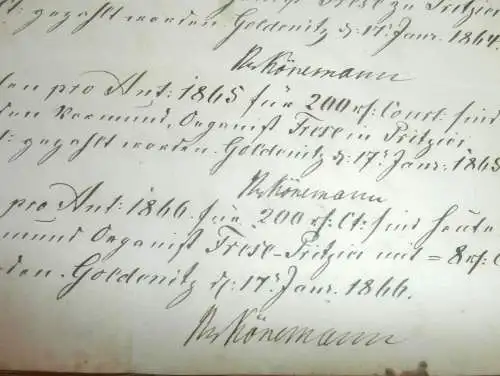 Frese zu Pritzier
Ct: gezahlt worden. Goldenitz d: 17t Janr. 1864
Könemann
den pro Ant: 1865 für 200 rf: Court: sind
den Vormund, Organist Frese in Pritzier
t: gezahlt worden. Goldenitz d: 17t Janr. 1865
Könemann
pro Ant: 1866. für 200 rf: Ct: sind heute
mund Organist Frese-Pritzier mit = 8 rf: C
den. Goldenitz d: 17t Janr. 1866.
Könemann